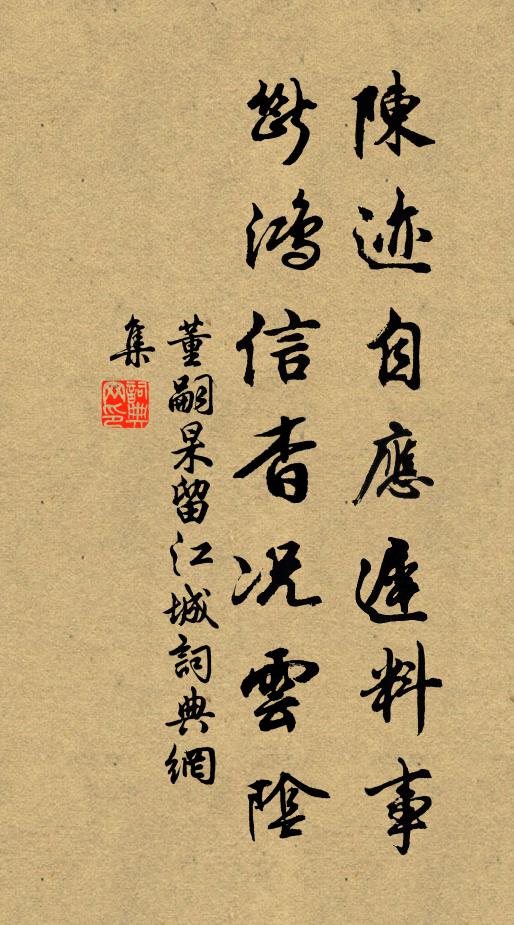 陳迹自應遲料事
斷鴻信杳況雲陰
董嗣杲留江城詞典網
集
詞典
网印